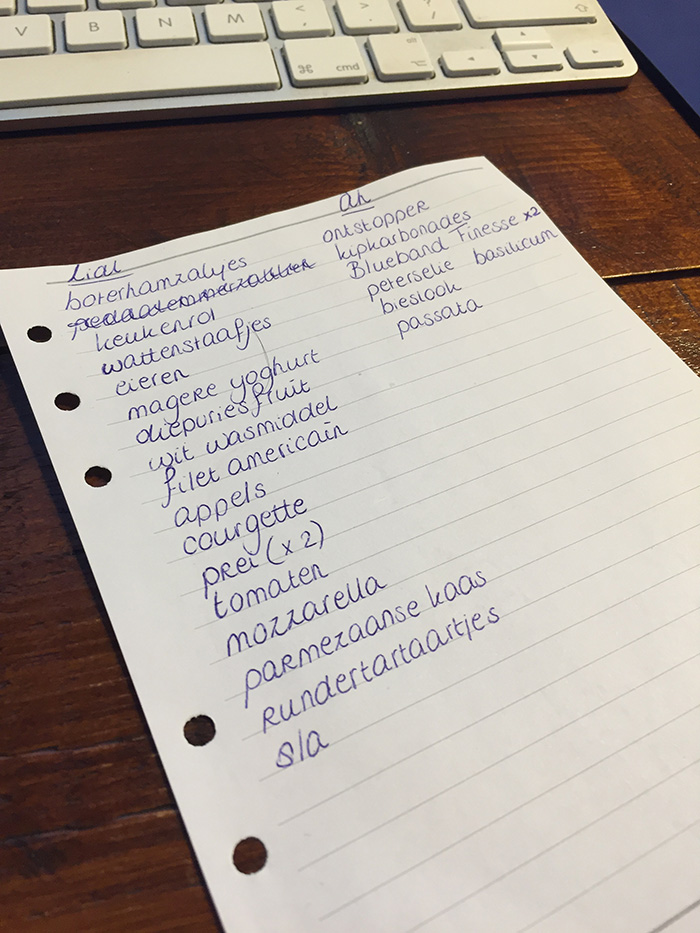 V B N M < , > . ? /
⌘ cmd alt ⌥
Lidl
boterhamzakjes
keukenrol
wattenstaafjes
eieren
magere yoghurt
diepvriesfruit
wit wasmiddel
filet americain
appels
courgette
prei (x2)
tomaten
mozzarella
parmezaanse kaas
rundertartaartjes
sla
ah
ontstopper
kipkarbonades
Blueband Finesse x2
peterselie basilicum
bieslook
passata